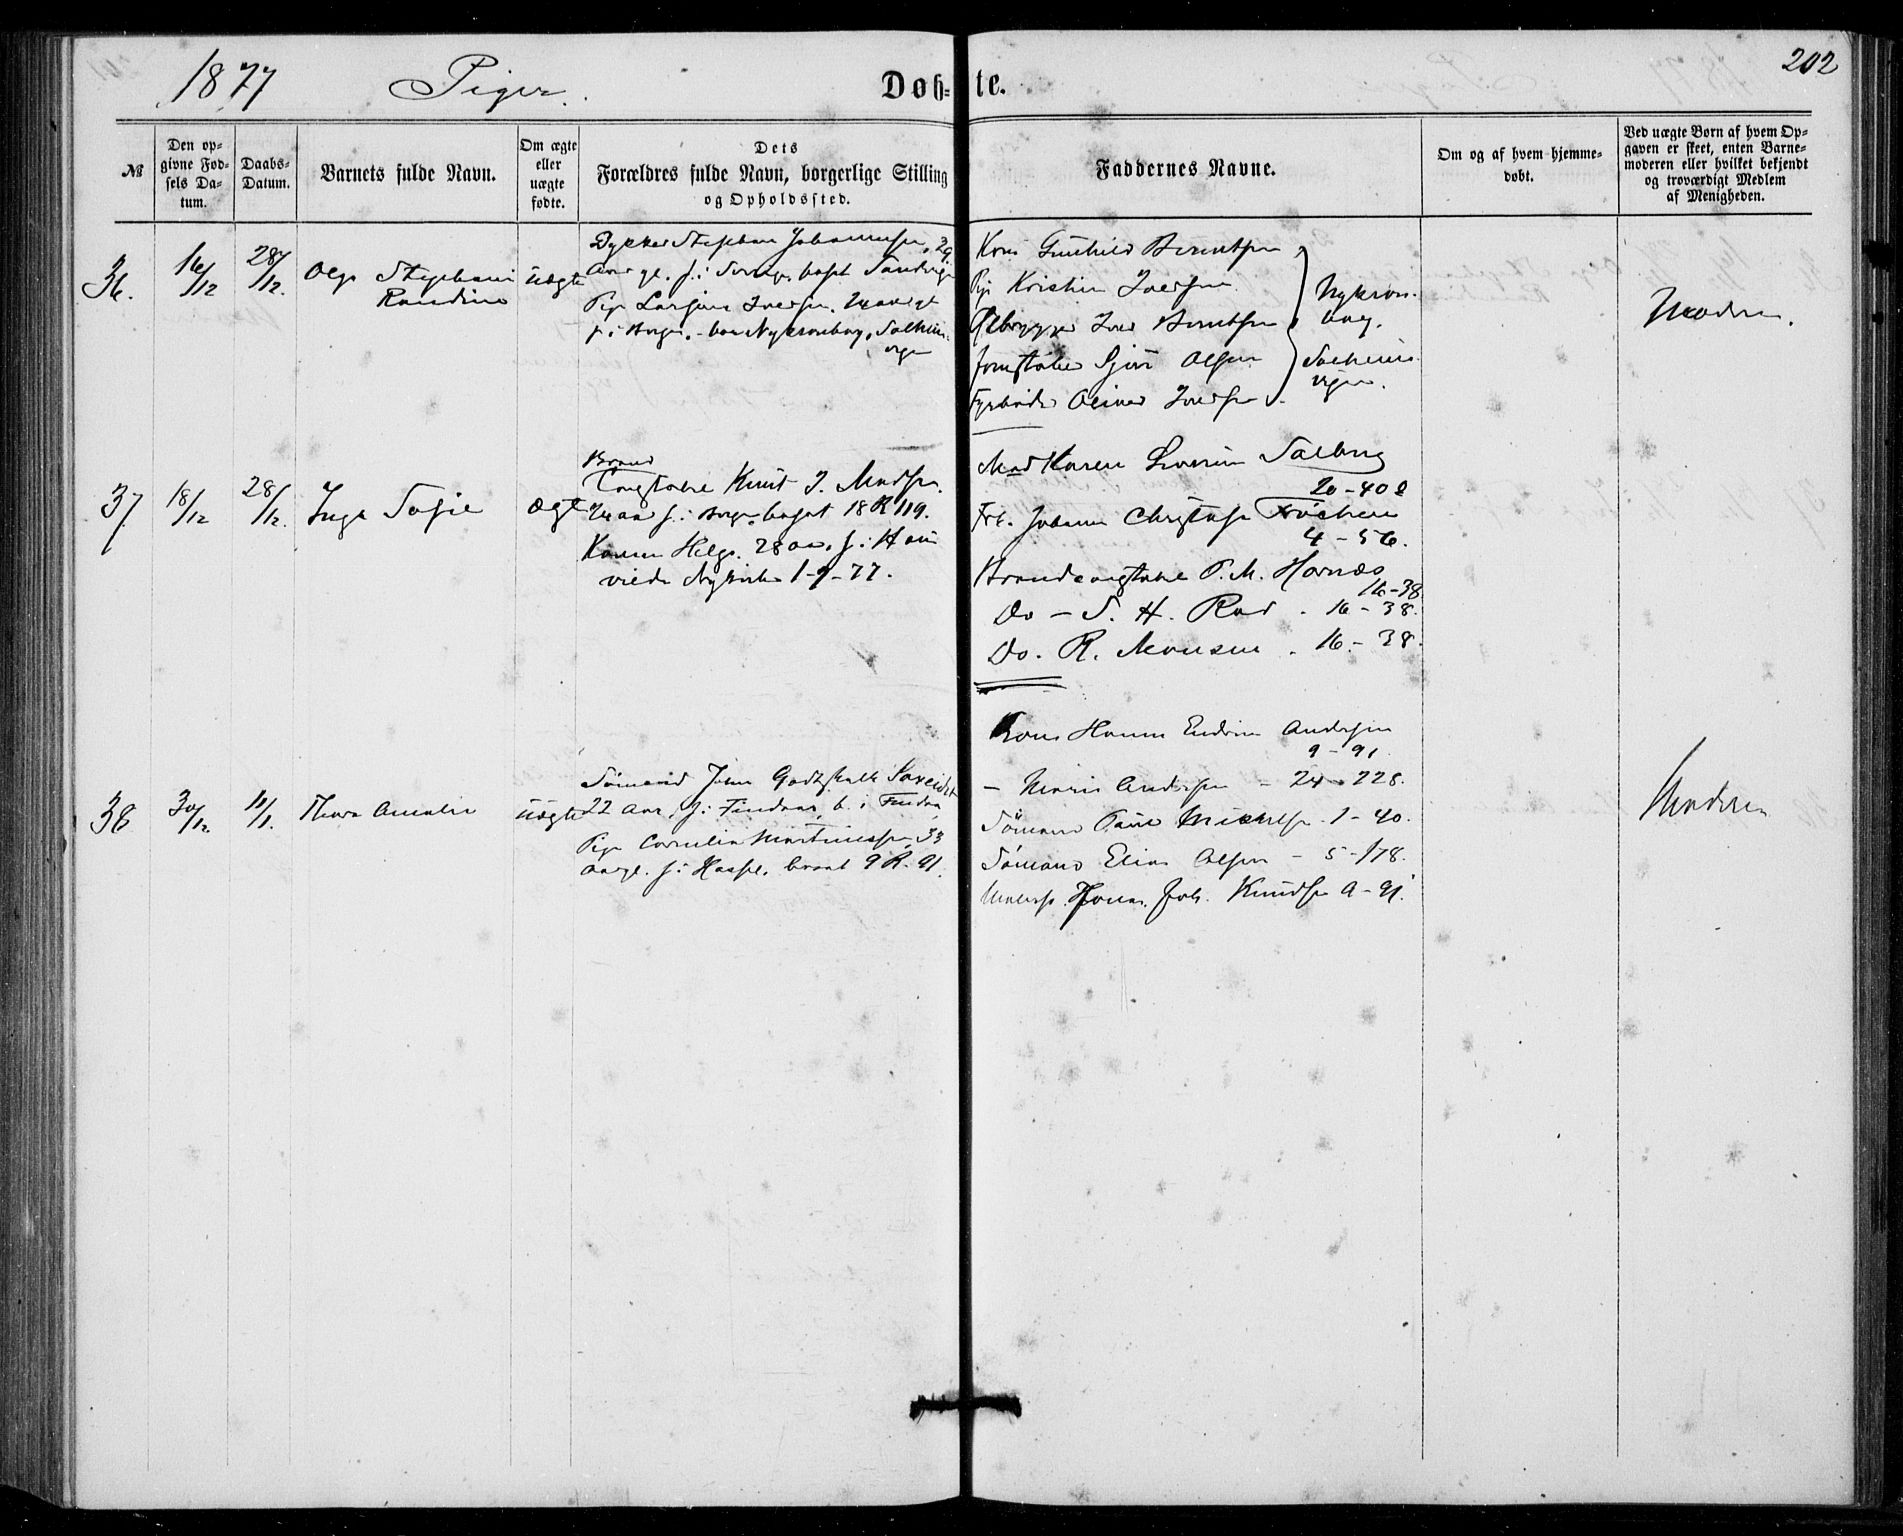 1877 Piger. Døb- te. 202
№
Den op-
givne Fød-
sels Da-
tum.
Daabs-
Datum.
Barnets fulde Navn.
Om ægte
eller
uægte
fødte.
Dets
Forældres fulde Navn, borgerlige Stilling
og Opholdssted.
Faddernes Navne.
Om og af hvem hjemme-
døbt.
Ved uægte Børn af hvem Op-
gaven er skeet, enten Barne-
moderen eller hvilket bekjendt
og troværdigt Medlem
af Menigheden.
36. 16/12 28/12. Olga Stephani
Randine
uægte
Dykker Stephan Johannesen, 29
Aar gl. f. i bosat Sandvigen
Pige Larsine Iversen. 24 aar gl
f. i Bergen. Nykronborg, Solheims-
vigen
Kone Gunhild Berntsen
Pige Kristine Iversen
Ølbrygger Iver Berntsen
Olsen
Fyrbøder Oliver Iversen.
Nykron-
borg.
Solheims
vigen.
Moderen.
37. 18/12 28/12. Inga Sofie ægte
Brand
Constabel Knut J. Madsen.
24 aar f. i Bergen bosat 18 R 119.
Helg. 28 aar. f. i
viede Nykirken 1-7-77.
Mad Karen Severin Salberg
20-40
Frk. Johanne Christofa
4-56.
Brandconstabel P. M. Hornæs
16-38
Do - S. H. Rød . 16-38.
Do. R. Monsen . 16-38.
38 30/12. 11/1. Thora Amalie uægte
Sømand John Godtskalk
22 Aar, f. i Findaas, b. i Findaas,
Pige Cornelia Martinussen, 33
aar gl. f. i 9 R. 91.
Kone Hanna Endrine Andersen
9-91.
- Maria Andersen - 24-228.
Sømand Paul Mikkelsen 1-40.
Sømand Elias Olsen - 5-178.
Joh. Knudsen 9-91.
Moderen